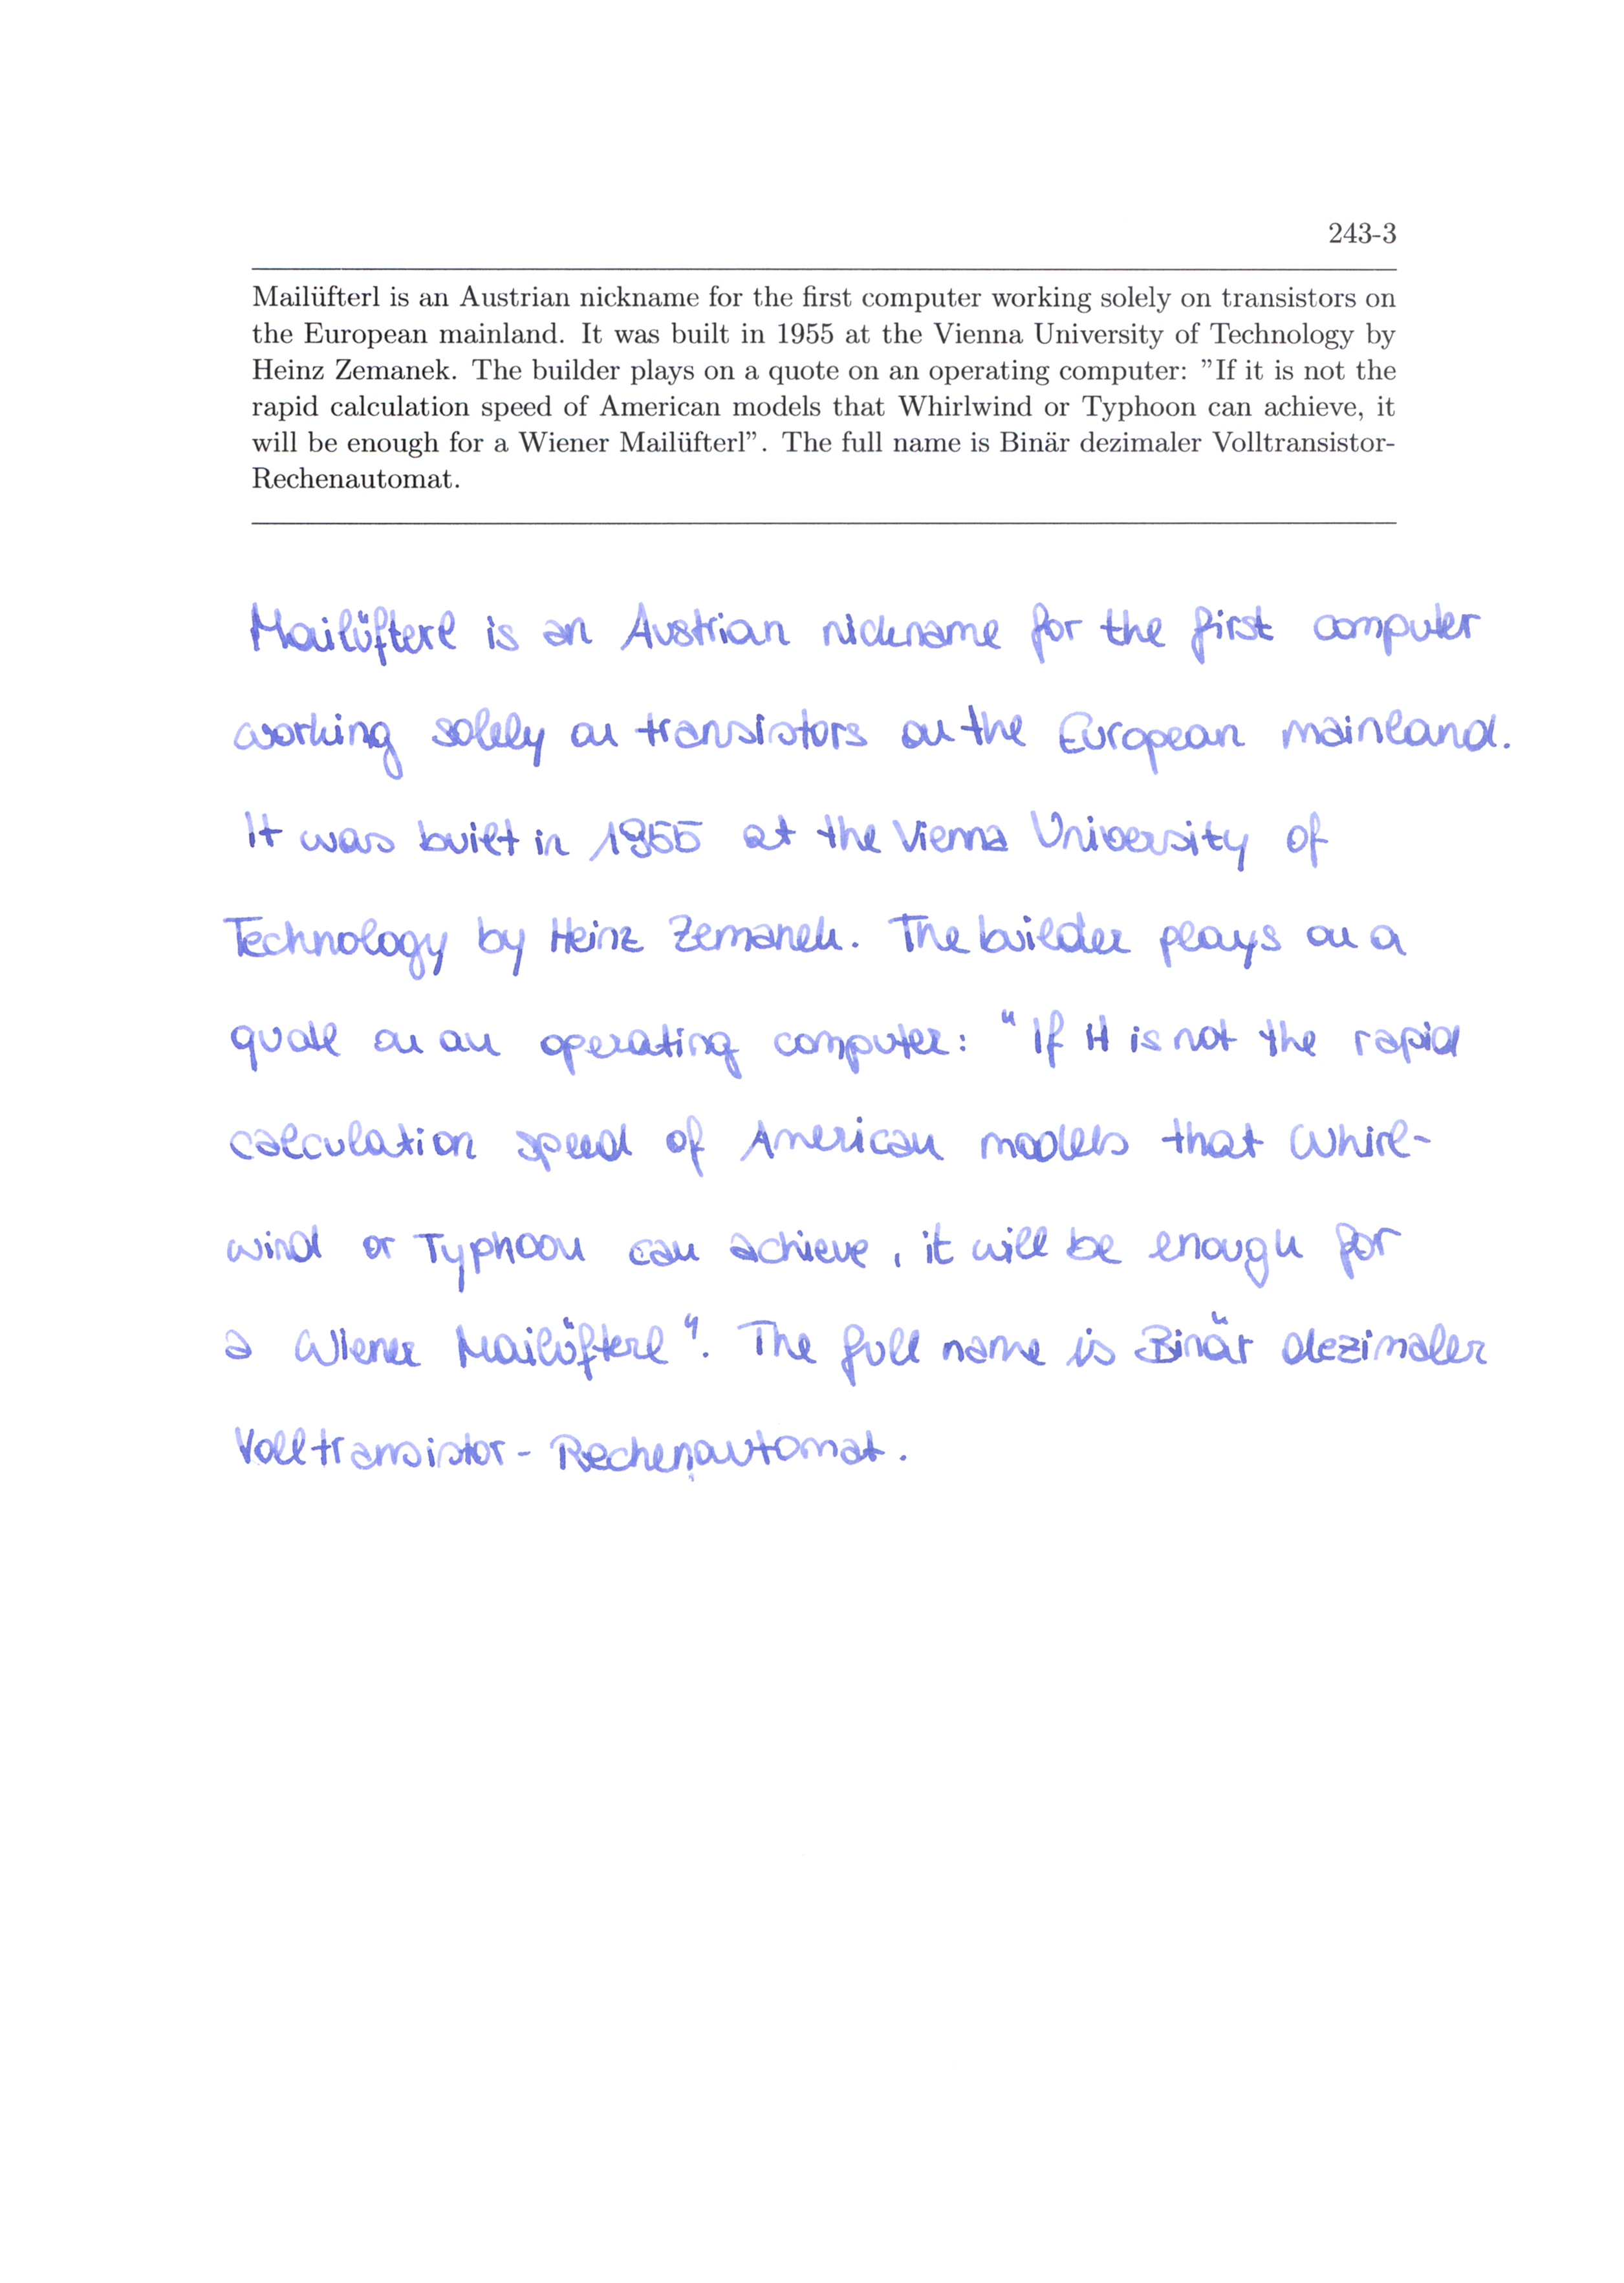 243-3
Mailüfterl is an Austrian nickname for the first computer working solely on transistors on
the European mainland. It was built in 1955 at the Vienna University of Technology by
Heinz Zemanek. The builder plays on a quote on an operating computer: ”If it is not the
rapid calculation speed of American models that Whirlwind or Typhoon can achieve, it
will be enough for a Wiener Mailüfterl”. The full name is Binär dezimaler Volltransistor-
Rechenautomat.
Mailüfterl is an Austrian nickname for the first computer
working solely on transistors on the European mainland.
It was built in 1955 at the Vienna University of
Technology by Heinz Zemanek. The builder plays on a
quote on an operating computer: "If it is not the rapid
calculation speed of American models that Whirl-
wind or Typhoon can achieve, it will be enough for
a Wiener Mailüfterl". The full name is Binär dezimaler
Volltransistor-Rechenautomat.